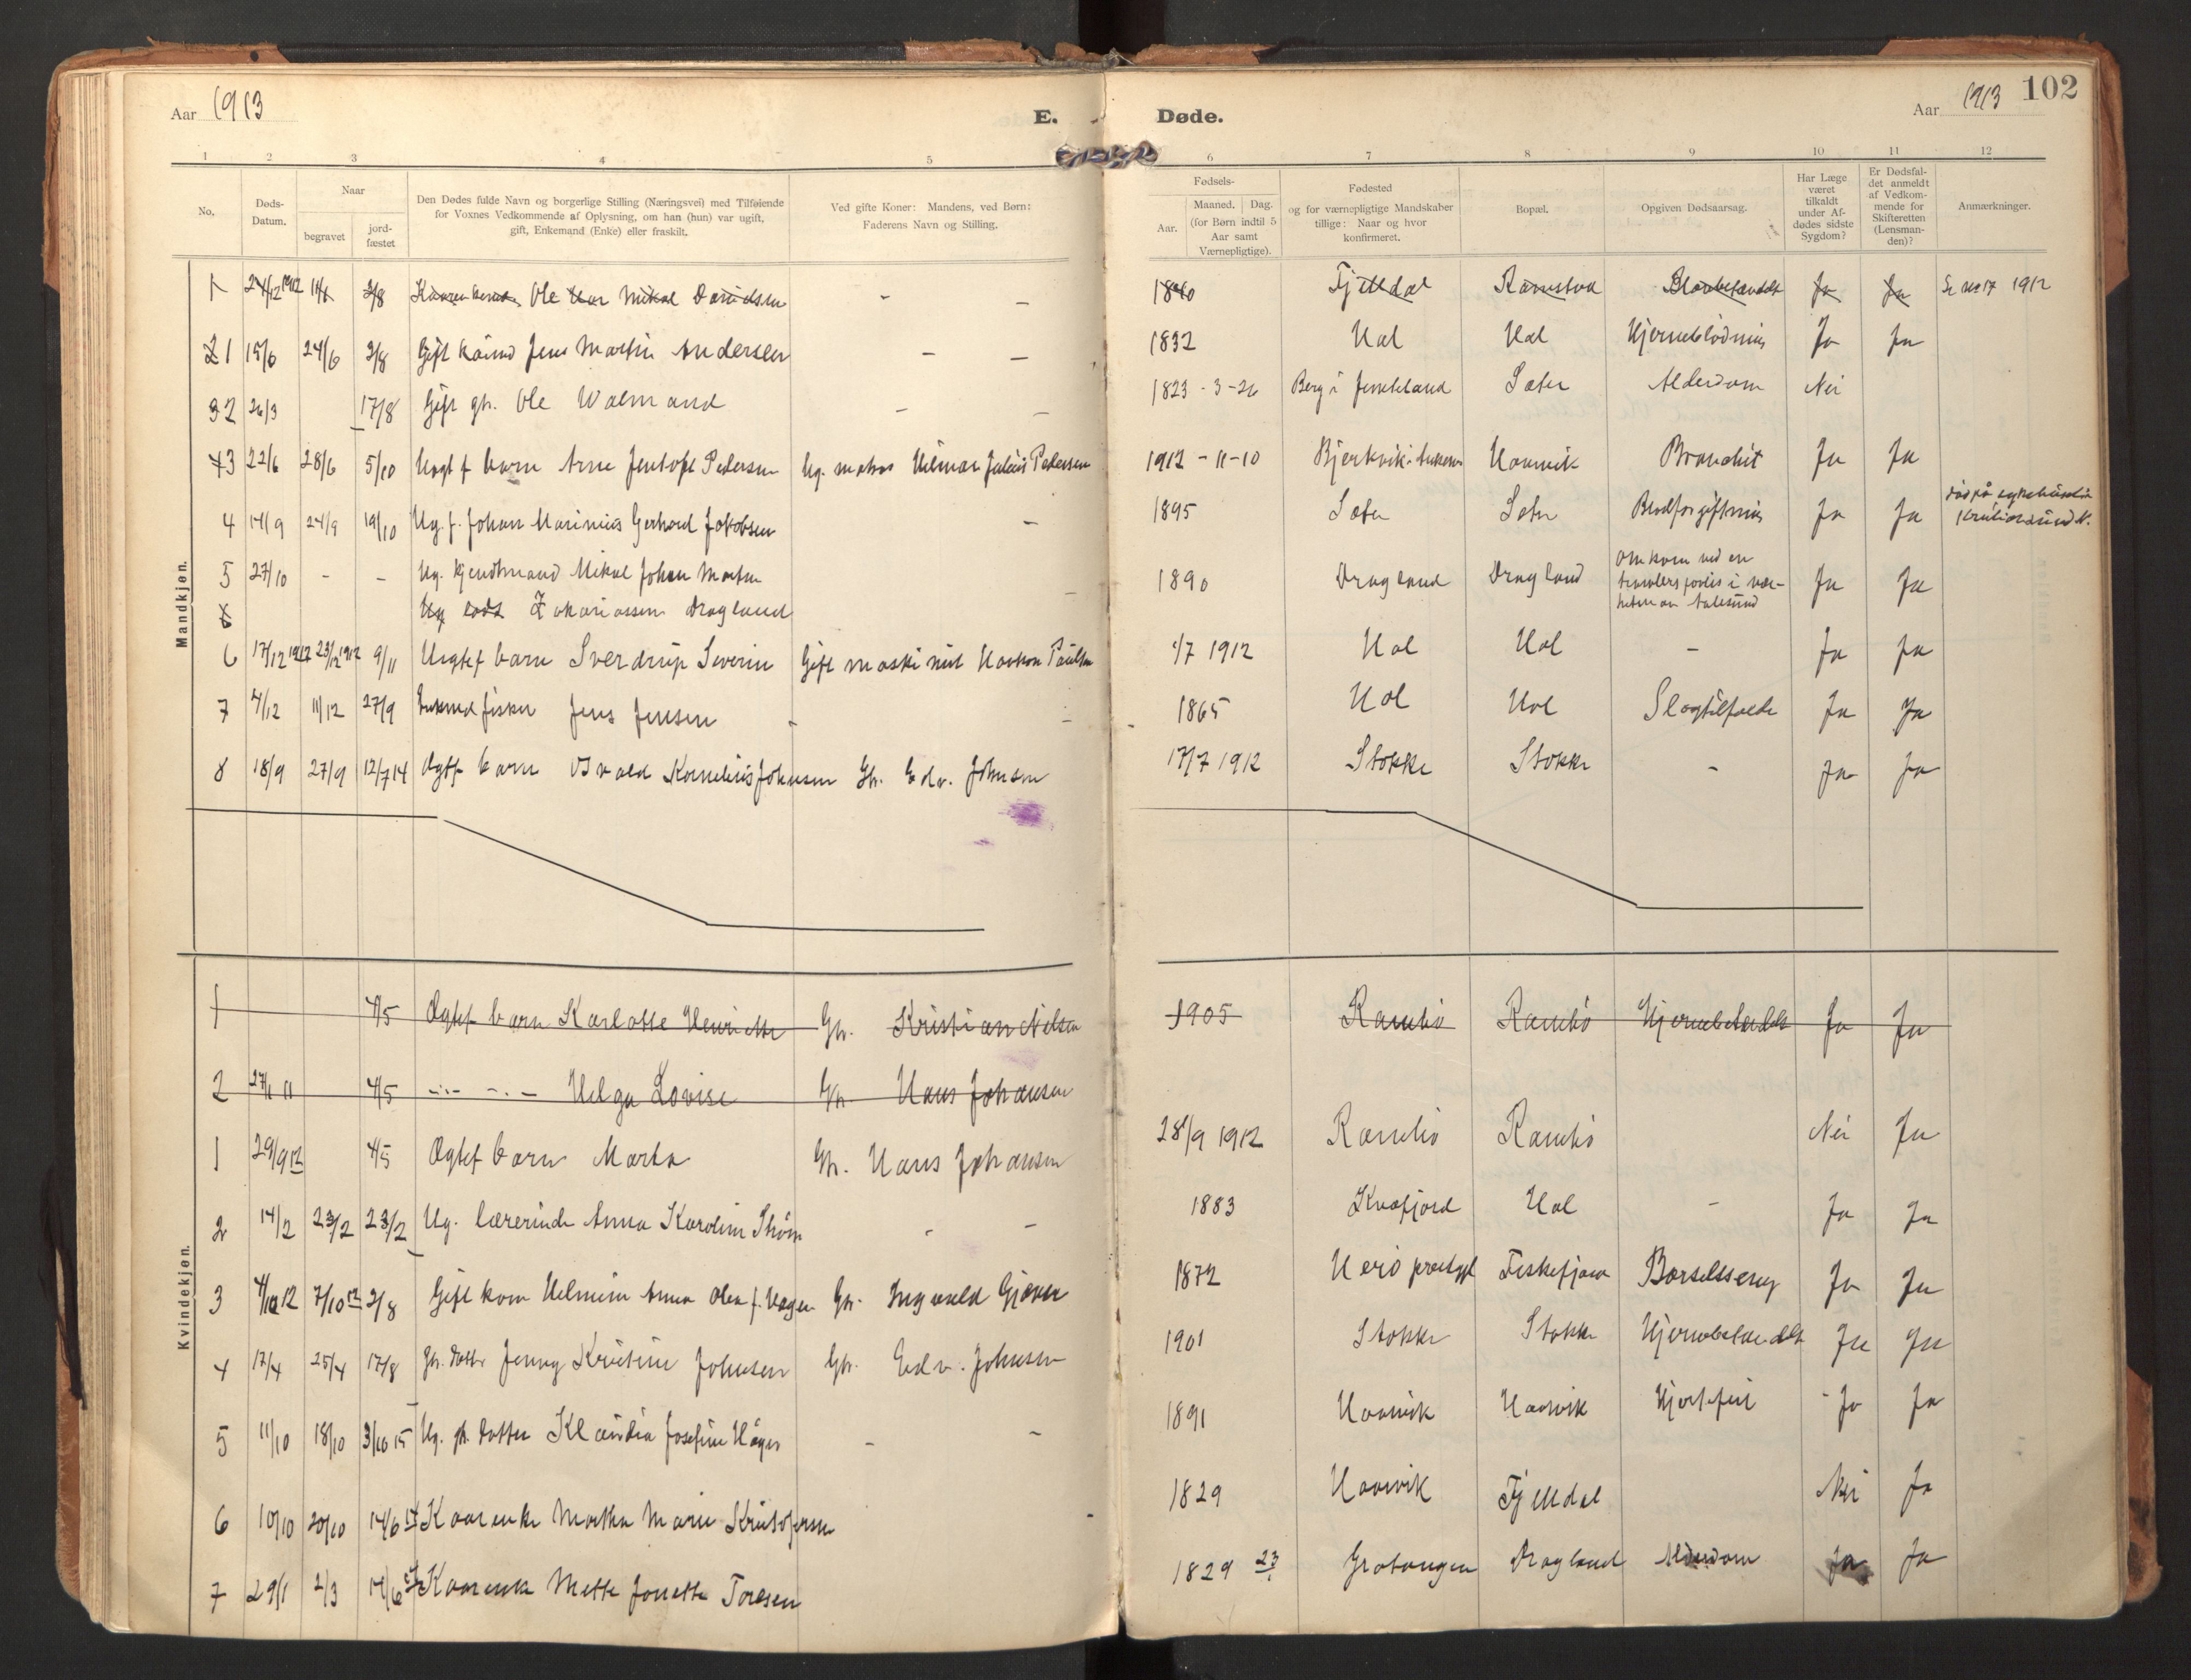 Aar 1913
E. Døde.
Aar 1913 102
1 2 3 4 5 6 7 8 9 10 11 12
No.
Døds-
Datum.
Naar
begravet
jord-
fæstet
Den Dødes fulde Navn og borgerlige Stilling (Næringsvei) med Tilføiende
for Voxnes Vedkommende af Oplysning, om han (hun) var ugift,
gift, Enkemand (Enke) eller fraskilt.
Ved gifte Koner: Mandens, ved Børn:
Faderens Navn og Stilling.
Fødsels-
Aar.
Maaned. Dag.
(for Børn indtil 5
Aar samt
Værnepligtige).
Fødested
og for værnepligtige Mandskaber
tillige: Naar og hvor
konfirmeret.
Bopæl.
Opgiven Dødsaarsag.
Har Læge
været
tilkaldt
under Af-
dødes sidste
Sygdom?
Er Dødsfal-
det anmeldt
af Vedkom-
mende for
Skifteretten
(Lensman-
den)?
Anmærkninger.
Mandkjøn.
1 24/12 1912 2/8 Ole Mikal Davidsen - - 1840 Fjelldal Ramstad Ja Ja Se 17 1912
1 15/6 24/6 2/8 Gift Jens Martin Andersen - - 1832 Hol Hol Hjerneblødning Ja Ja
2 26/3 17/8 Gift gr. Ole Walmand - - 1823-3-26 Berg i Sæter Alderdom Nei
3 22/6 28/6 5/10 barn Arne Jentoft Pedersen Ug. matros Hilmar Julius Pedersen 1912-11-10 Bjerkvik i Haarvik Bronchit Ja Ja
4 14/9 24/9 19/10 Ug. f. Johan Marinius Gerhard Jakobsen - 1895 Sæter Sæter Blodforgiftning Ja Ja død på sykehuset i
Kristiansund N.
5 27/10 - - Ug. Mikal Johan Martin
Zakariassen Dragland - 1890 Dragland Dragland Omkom ved en
trawlers forlis i nær-
heten av Aalesund Ja Ja
6 17/12 1912 23/12 1912 9/11 barn Sverdrup Severin Gift maskinist Haakon Paulsen 1/7 1912 Hol Hol - Ja Ja
7 4/12 11/12 27/9 fisker Jens Jensen - - 1865 Hol Hol Slagtilfælde Ja Ja
8 18/9 27/9 12/7 14 barn Osvald Kornelius Johnsen Gr. Edv. Johnsen 17/7 1912 Stokke Stokke - Ja Ja
Kvindekjøn.
1 4/5 Ægtef barn Karlotte Henriette Gr. Kristian Nilsen 1905 Rambø Rambø Hjernebetændelse Ja Ja
2 27/1 11 4/5 -"- -"- Helga Lovise Gr. Hans Johansen
1 29/9 12 4/5 Ægtef barn Marta Gr. Hans Johansen 28/9 1912 Rambø Rambø Nei Ja
2 14/2 23/2 23/2 Ug. lærerinde Anna Karoline Strøm - - 1883 Kvæfjord Hol - Ja Ja
3 12 7/10 12 2/8 Gift kone Helmine Anna Olea f. Hagen Gr. Ingvald Gjæver 1872 Herø prestgj Fiskefjord Barselsseng Ja Ja
4 17/4 25/4 17/8 Gr. datter Jenny Kristine Johnsen Gr. Edv. Johnsen 1901 Stokke Stokke Hjernebetændelse Ja Ja
5 11/10 18/10 3/10 15 Ug. gr. datter Klaudia Josefine - - 1891 Haarvik Haarvik Hjertefeil Ja Ja
6 10/10 20/10 14/6 14 Kaarenke Martha Marie Kristofersen - 1829 Haarvik Fjelldal Nei Ja
7 29/1 2/3 14/6 14 Kaarenke Mette Jonette Toresen 1829 23 Gratangen Dragland Alderdom Ja Ja